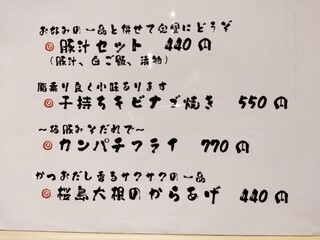 お好みの一品と併せて定食にどうぞ
豚汁セット 440円
(豚汁、白ご飯、漬物)
脂乗り良く小味あります
子持ちキビナゴ焼き 550円
〜塩豚みそだれで〜
カンパチフライ 770円
かつおだし香るサクサクの一品
桜島大根のからあげ 440円